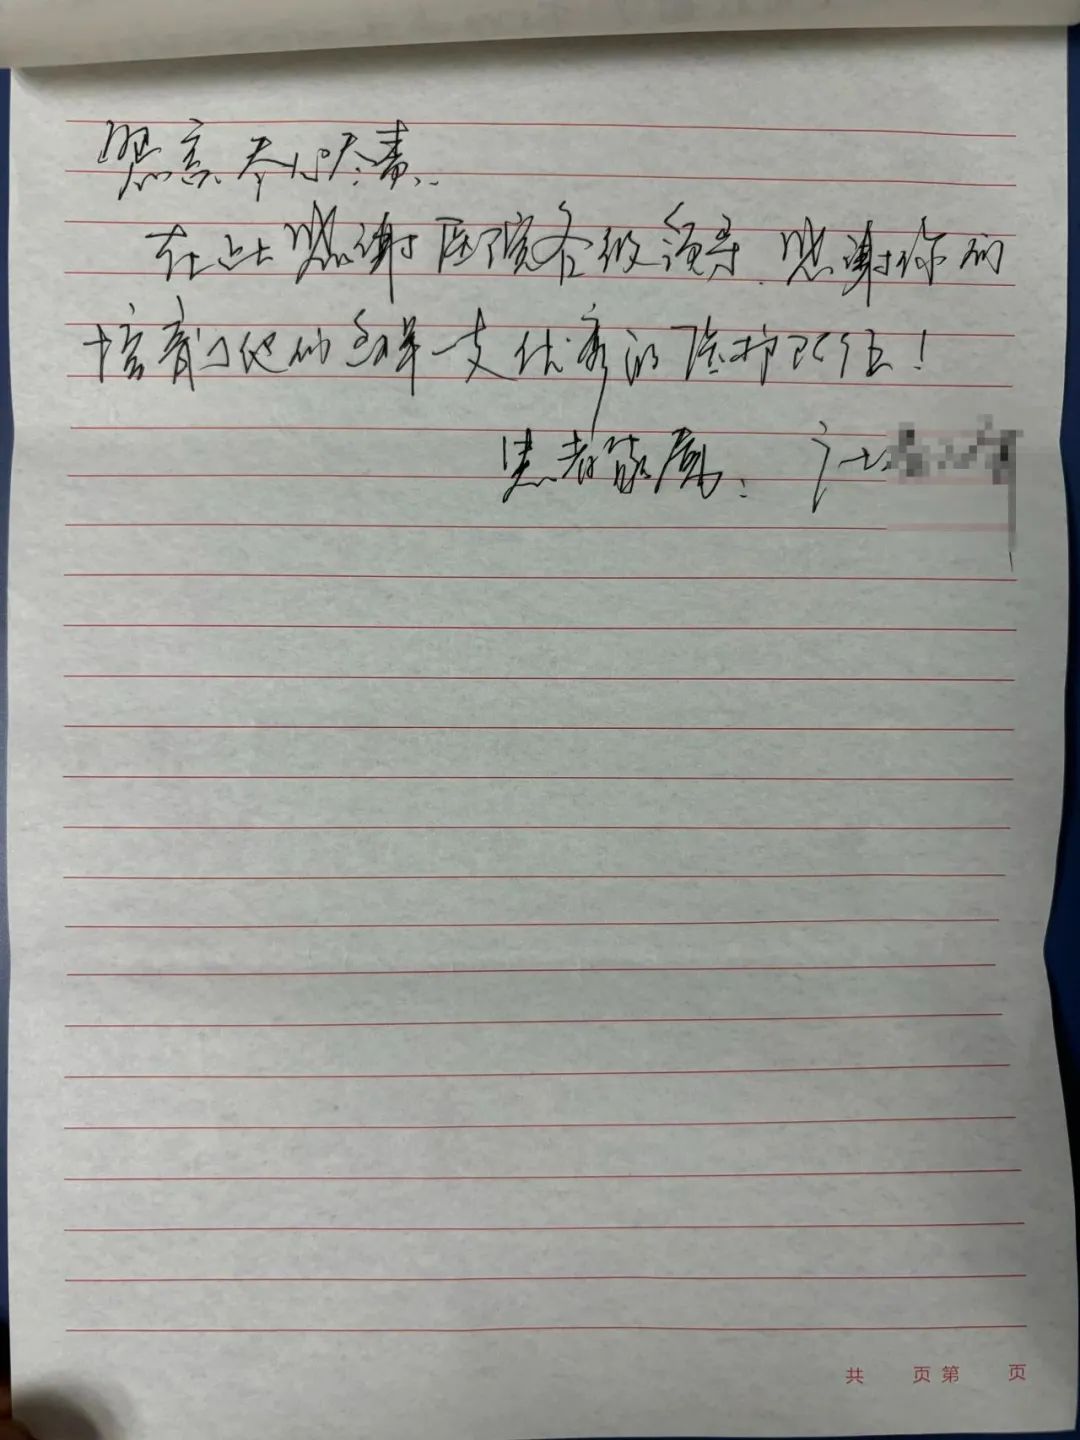 恳言、尽心尽责.
在此感谢医院各级领导.感谢你的
培育了他们这样一支优秀的医护队伍!
患者家属:
共 页 第 页